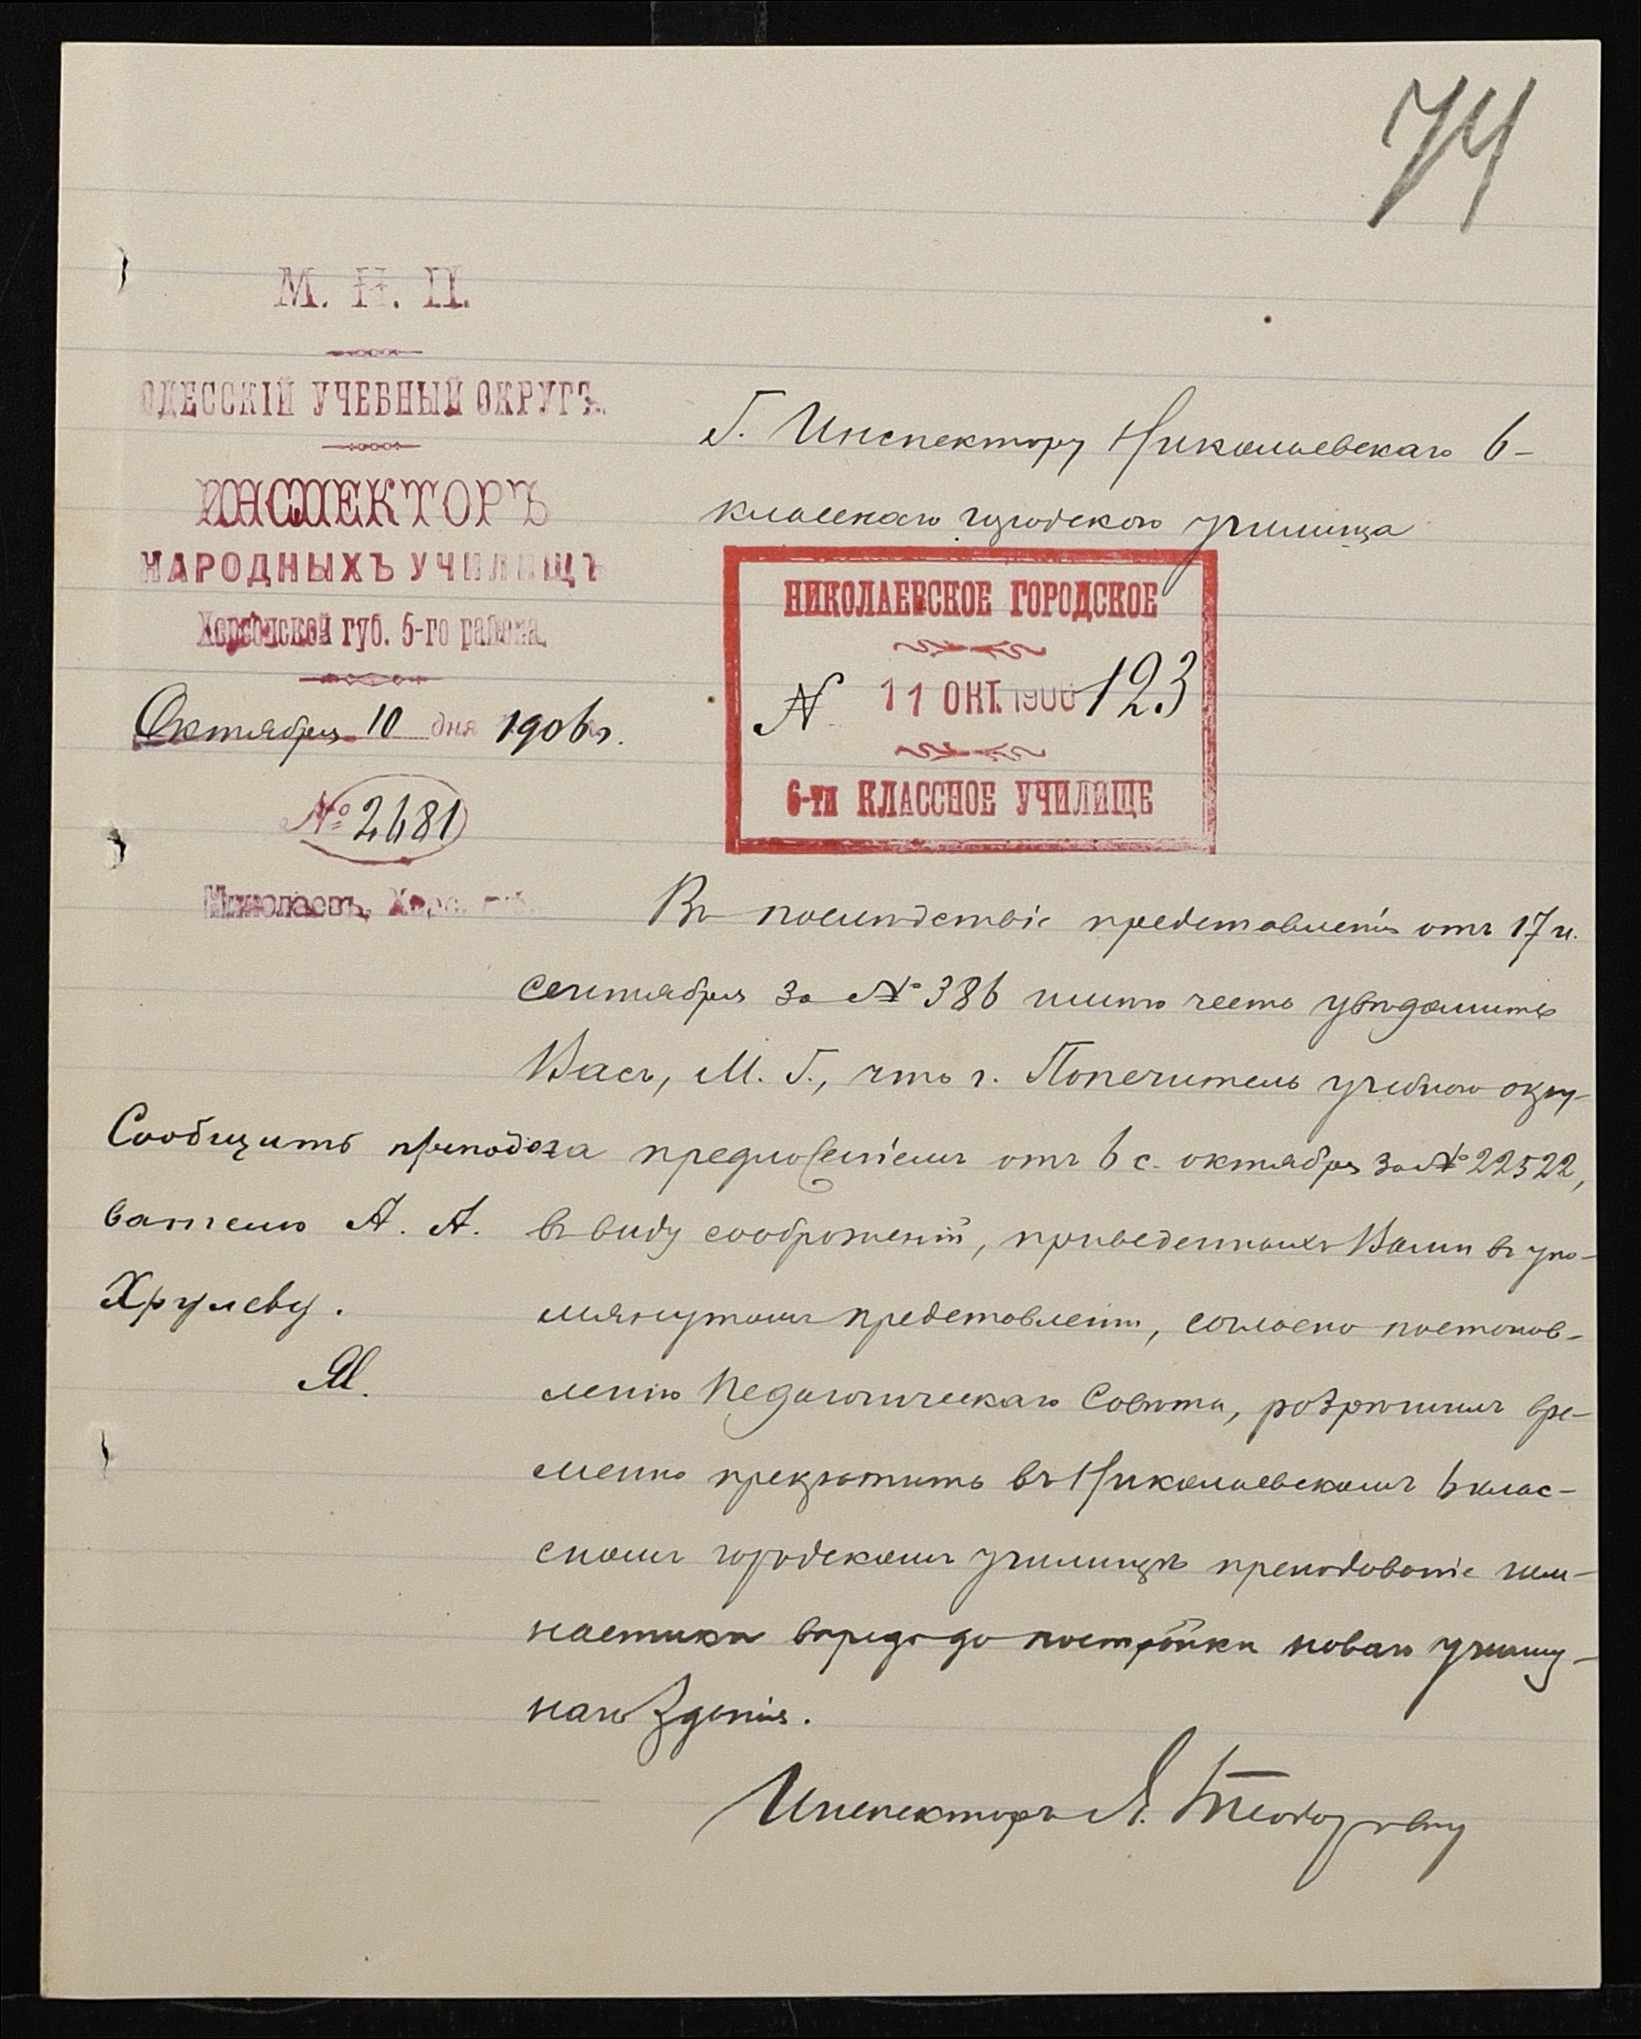 74
М. Н. П.
ОДЕССКІЙ УЧЕБНЫЙ ОКРУГЪ.
ИНСПЕКТОРЪ
НАРОДНЫХЪ УЧИЛИЩЪ
Херсонской губ. 5-го района.
Октября 10 дня 1906 г.
№ 2481
Николаевъ, Херс. губ.
Г. Инспектору Николаевскаго 6-
класснаго городского училища
НИКОЛАЕВСКОЕ ГОРОДСКОЕ
N 11 ОКТ. 1906 123
6-ти КЛАССНОЕ УЧИЛИЩЕ
Въ послѣдствіе представленія отъ 17 м.
сентября за № 386 имѣю честь увѣдомить
Васъ, М. Г., что г. Попечитель учебного окру-
га предложеніемъ отъ 6 с. октября за № 22522,
въ виду соображеній, приведенныхъ Вами въ упо-
мянутомъ представленіи, согласно постанов-
ленію Педагогическаго Совѣта, разрѣшилъ вре-
менно прекратить въ Николаевскомъ 6 клас-
сномъ городскомъ училищѣ преподаваніе гим-
настики впредь до постройки новаго училищ-
наго зданія.
Инспекторъ
Сообщить препода-
вателю А. А.
Хрулеву.